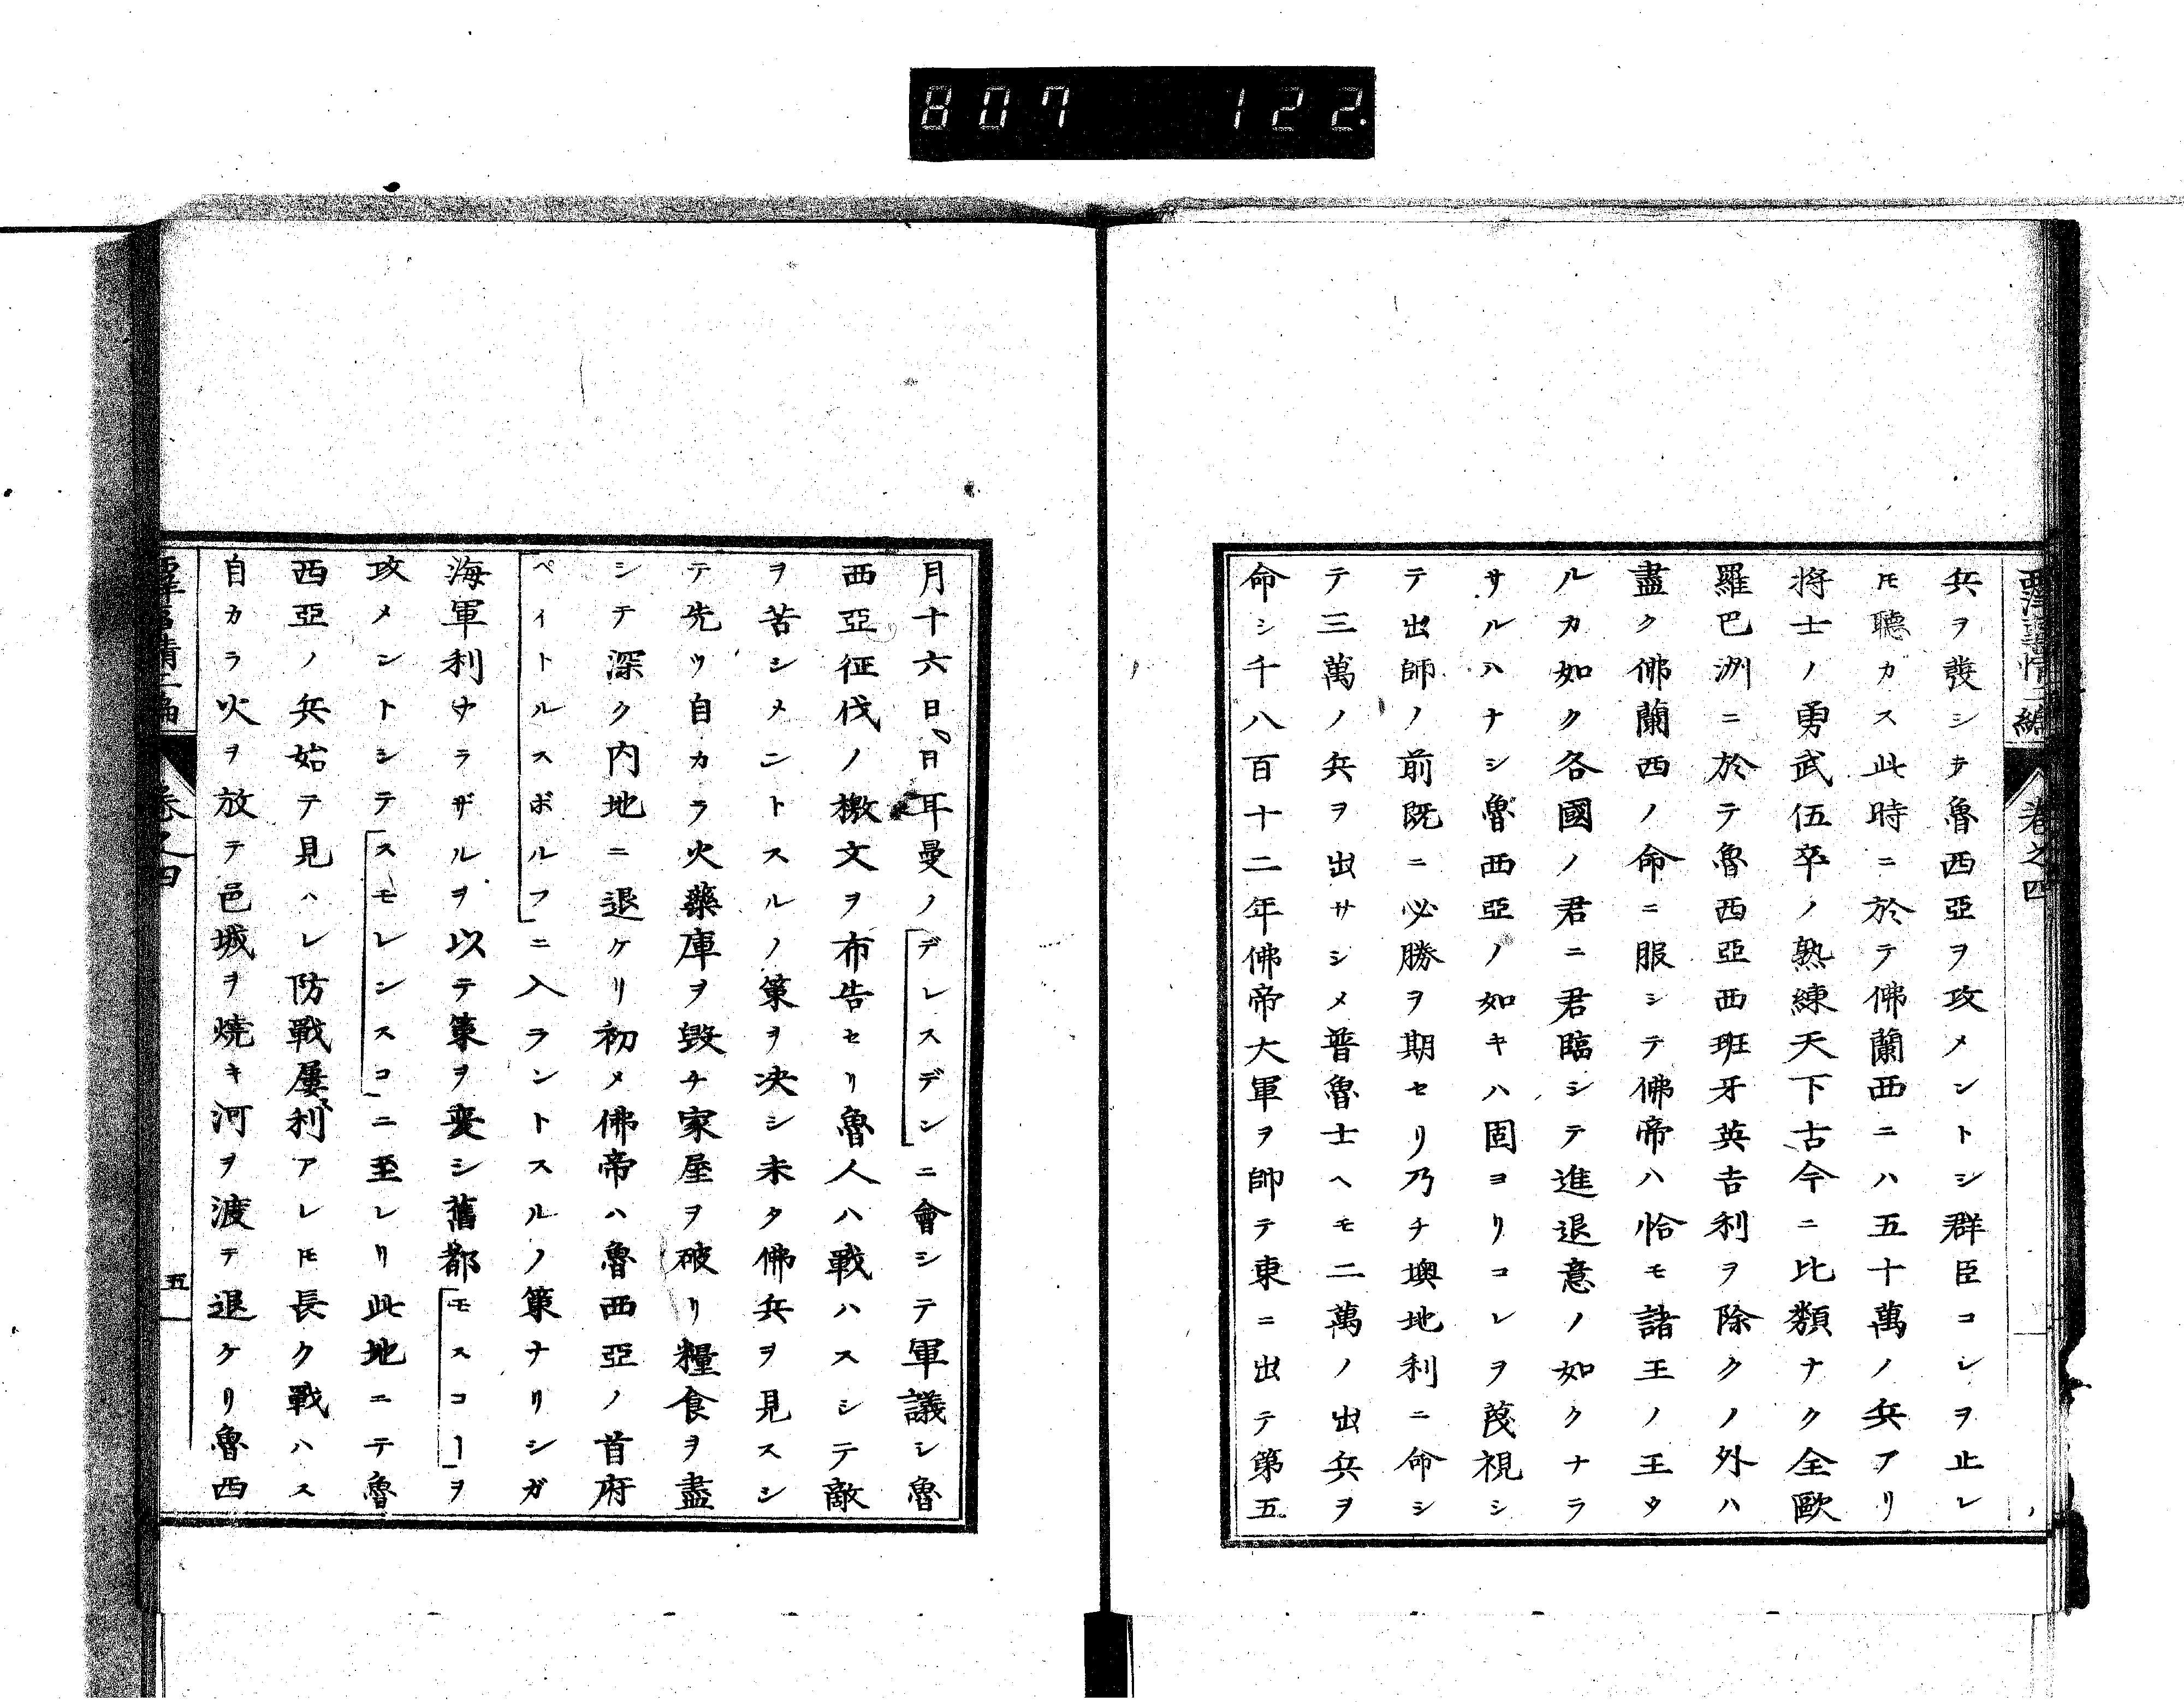 807 122.
西洋事情二編 巻之四
兵ヲ發シテ魯西亞ヲ攻メントシ群臣コレヲ止レ
𪜈聽カス此時ニ於テ佛蘭西ニハ五十萬ノ兵アリ
將士ノ勇武伍卒ノ熟練天下古今ニ比類ナク全歐
羅巴洲ニ於テ魯西亞西班牙英吉利ヲ除クノ外ハ
盡ク佛蘭西ノ命ニ服シテ佛帝ハ恰モ諸王ノ王タ
ルカ如ク各國ノ君ニ君臨シテ進退意ノ如クナラ
サルハナシ魯西亞ノ如キハ固ヨリコレヲ蔑視シ
テ出師ノ前既ニ必勝ヲ期セリ乃チ墺地利ニ命シ
テ三萬ノ兵ヲ出サシメ普魯士ヘモ二萬ノ出兵ヲ
命シ千八百十二年佛帝大軍ヲ帥テ東ニ出テ第五
月十六日日耳曼ノ「デレスデン」ニ會シテ軍議シ魯
西亞征伐ノ檄文ヲ布告セリ魯人ハ戰ハスシテ敵
ヲ苦シメニトスルノ策ヲ決シ未タ佛兵ヲ見スシ
テ先ツ自カラ火藥庫ヲ毀チ家屋ヲ破リ糧食ヲ盡
シテ深ク内地ニ退ケリ初メ佛帝ハ魯西亞ノ首府
「ペイトルスボルフ」ニ入ラントスルノ策ナリシガ
海軍利ナラザルヲ以テ策ヲ変シ舊都「モスコー」ヲ
攻メントシテ「スモレンスコ」ニ至レリ此地ニテ魯
西亞ノ兵始テ見ハレ防戰屢利アレ𪜈長ク戰ハス
自カラ火ヲ放テ邑城ヲ燒キ河ヲ渡テ退ケリ魯西
西洋事情二編 巻之四 五